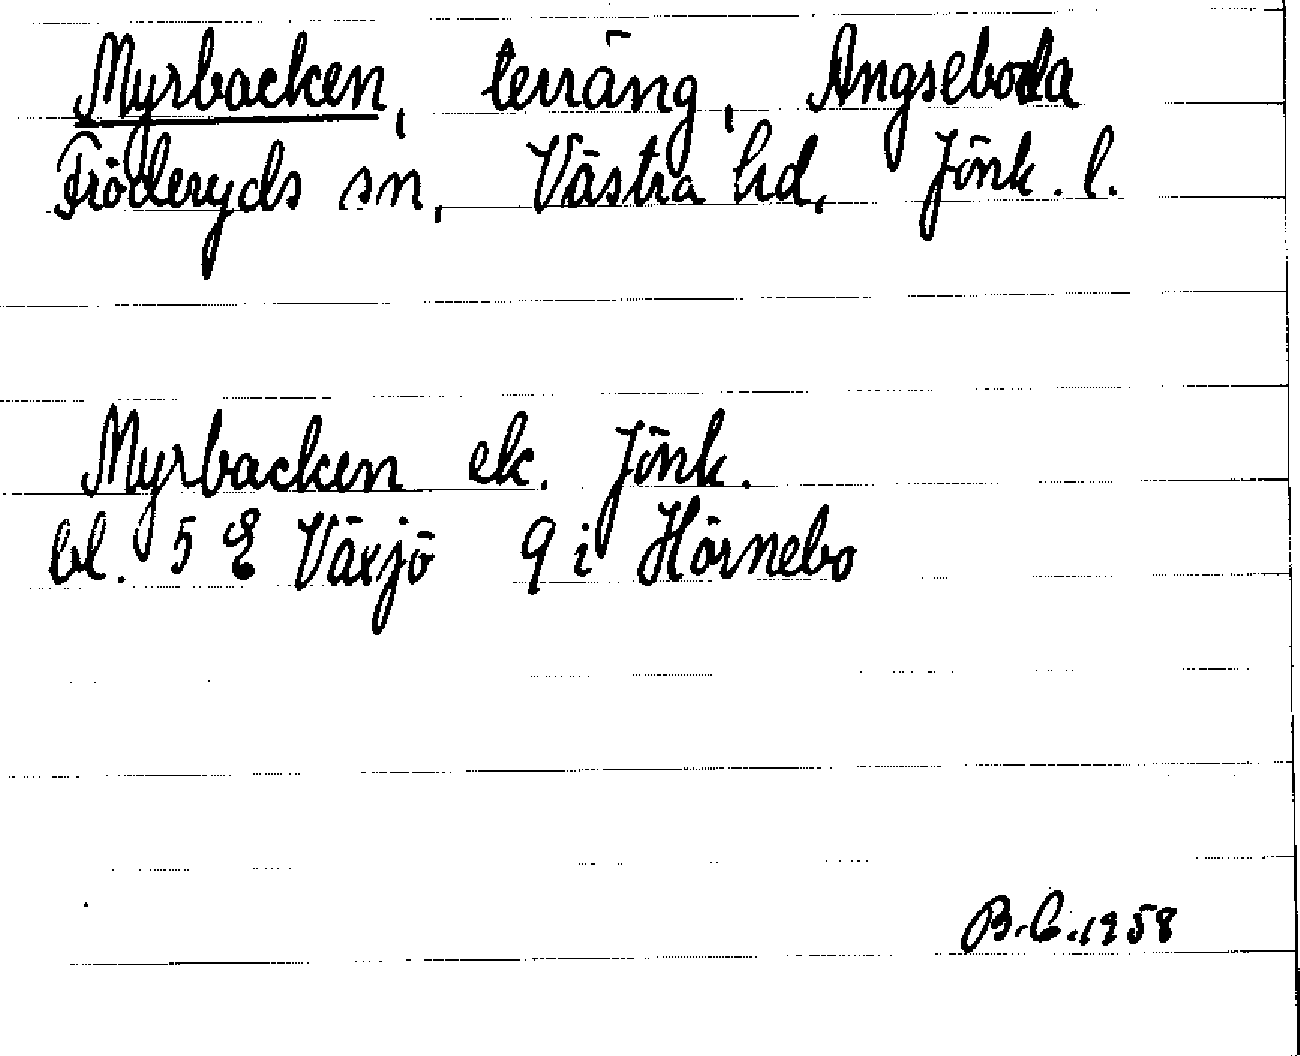 Myrbacken, terräng, Ängseboda
Fröderyds sn, Västra hd, Jönk. l.
Myrbacken ek. Jönk.
bl. 5 E Växjö 9 i Hörnebo
B.C. 1958